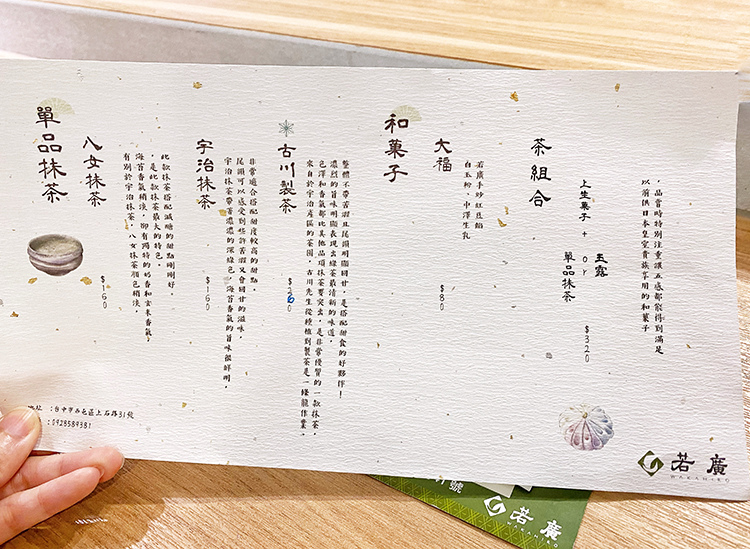 單品抹茶
八女抹茶
$160
有別於宇治抹茶，八女抹茶顏色稍淺，
海苔香氣稍淡，卻有獨特的奶香和玄米香氣，
，是此款抹茶最大的特色。
此款抹茶搭配減糖的甜點剛剛好。
宇治抹茶
$160
宇治抹茶帶著濃濃的深綠色，海苔香氣的旨味很鮮明，
尾韻可以感受到些許苦澀又會回甘的滋味，
非常適合搭配甜度較高的甜點。
古川製茶
$260
來自於宇治產區的茶園，古川先生從種植到製茶是一條龍作業，
色澤和香氣都比其他品項抹茶要突出，是非常優質的一款抹茶，
濃烈的旨味明顯表現出綠茶最清新的味道，
整體不帶苦澀且尾韻明顯回甘，是搭配甜食的好夥伴！
和菓子
大福
$80
白玉粉，中澤生乳
若廣手炒紅豆餡
茶組合
上生菓子 +
玉露
or
單品抹茶
$320
以前供日本皇室貴族享用的和菓子
，品嘗時特別注重讓五感都能得到滿足
地址 :台中市西屯區上石路31號
:0928589381
若廣
WAKAHIRO
號
若廣